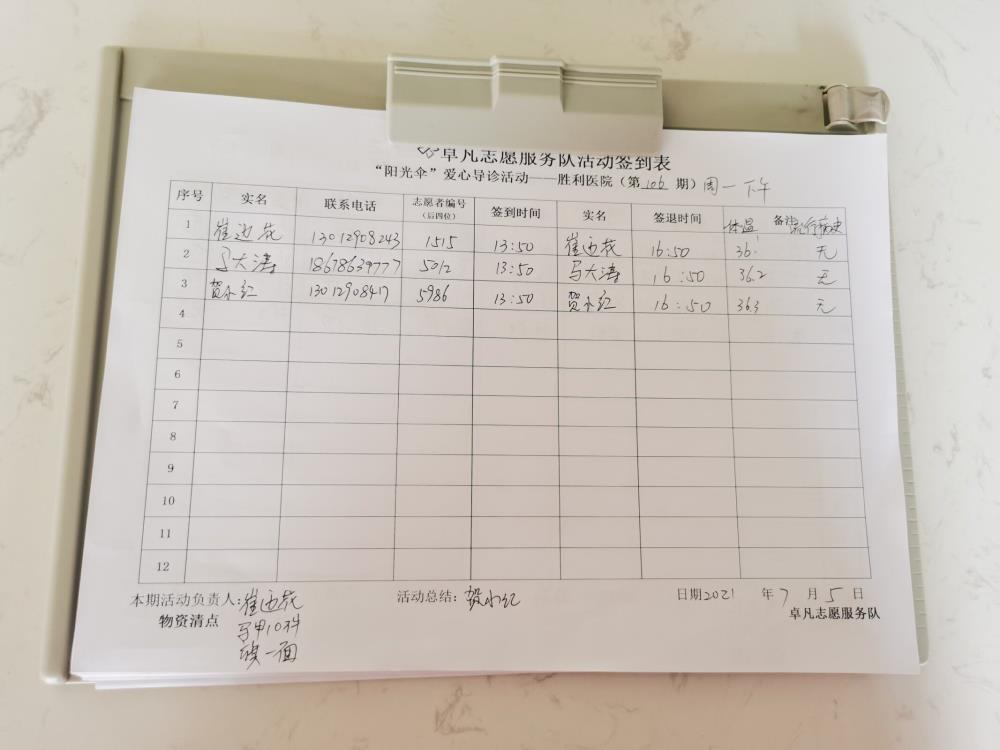 卓凡志愿服务队活动签到表
“阳光伞”爱心导诊活动——胜利医院（第106期）周一下午
序号 实名 联系电话 志愿者编号（后四位） 签到时间 实名 签退时间 备注 体温 流行病史
1 崔迎花 13012908243 1515 13:50 崔迎花 16:50 36. 无
2 马大涛 18678639777 5012 13:50 马大涛 16:50 36.2 无
3 贺小红 13012908417 5986 13:50 贺小红 16:50 36.3 无
4
5
6
7
8
9
10
11
12
本期活动负责人：崔迎花 活动总结：贺小红 日期2021年7月5日
物资清点 马甲10件 卓凡志愿服务队
旗一面